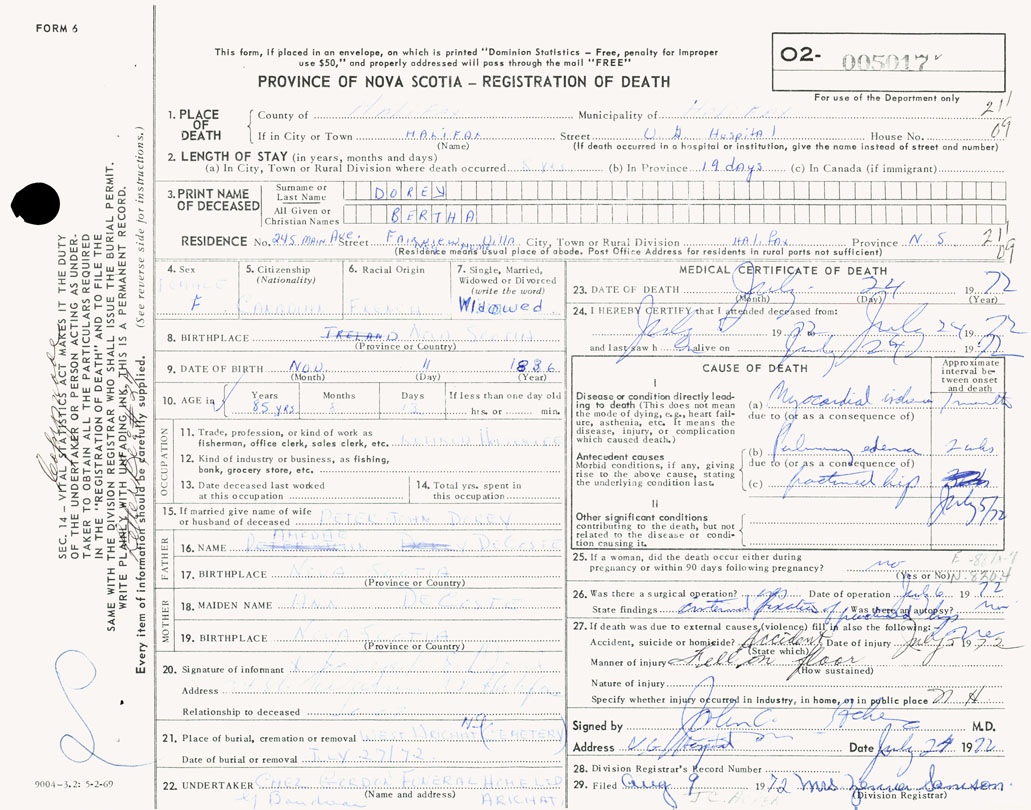 FORM 6
This form, if placed in an envelope, on which is printed "Dominion Statistics – Free, penalty for improper
use $50," and properly addressed will pass through the mail "FREE"
PROVINCE OF NOVA SCOTIA – REGISTRATION OF DEATH
O2- 005017
For use of the Department only
211
09
1. PLACE OF DEATH
County of Halifax Municipality of Halifax
If in City or Town HALIFAX Street V G Hospital House No.
(Name) (If death occurred in a hospital or institution, give the name instead of street and number)
2. LENGTH OF STAY (in years, months and days)
(a) In City, Town or Rural Division where death occurred (b) In Province 19 days (c) In Canada (if immigrant)
3. PRINT NAME OF DECEASED
Surname or Last Name DOREY
All Given or Christian Names BERTHA
RESIDENCE No. 245 MAIN Ave. Street Fairview Villa City, Town or Rural Division Halifax Province N S 211
09
(Residence means usual place of abode. Post Office Address for residents in rural parts not sufficient)
4. Sex
FEMALE
F
5. Citizenship
(Nationality)
CANADIAN
6. Racial Origin
FRENCH
7. Single, Married, Widowed or Divorced
(write the word)
Widowed
8. BIRTHPLACE IRELAND NOVA SCOTIA
(Province or Country)
9. DATE OF BIRTH Nov. 11 1886
(Month) (Day) (Year)
10. AGE in
Years Months Days If less than one day old
85 yrs 8 12 hrs. or min.
OCCUPATION
11. Trade, profession, or kind of work as
fisherman, office clerk, sales clerk, etc.
12. Kind of industry or business, as fishing,
bank, grocery store, etc.
13. Date deceased last worked
at this occupation
14. Total yrs. spent in
this occupation
15. If married give name of wife
or husband of deceased PETER JOHN DOREY
FATHER
16. NAME DECOSTE
17. BIRTHPLACE NOVA SCOTIA
(Province or Country)
MOTHER
18. MAIDEN NAME ANN DECOSTE
19. BIRTHPLACE NOVA SCOTIA
(Province or Country)
20. Signature of informant
Address
Relationship to deceased
21. Place of burial, cremation or removal WEST (CEMETERY) N.S.
Date of burial or removal JULY 27/72
22. UNDERTAKER CHEZ GORDON FUNERAL HOME LTD
(Name and address) ARICHAT
9004–3.2: 5-2-69
MEDICAL CERTIFICATE OF DEATH
23. DATE OF DEATH July 24 1972
(Month) (Day) (Year)
24. I HEREBY CERTIFY that I attended deceased from:
July 5 1972 July 24 1972
and last saw h er alive on July 24 1972
CAUSE OF DEATH
Approximate interval between onset and death
I
Disease or condition directly leading to death (This does not mean the mode of dying, e.g., heart failure, asthenia, etc. It means the disease, injury, or complication which caused death.)
(a) Myocardial ischemia 1 month
due to (or as a consequence of)
Antecedent causes
Morbid conditions, if any, giving rise to the above cause, stating the underlying condition last.
(b) Pulmonary edema 2 wks
due to (or as a consequence of)
(c) fractured hip July 5/72
II
Other significant conditions
contributing to the death, but not
related to the disease or condition causing it.
25. If a woman, did the death occur either during
pregnancy or within 90 days following pregnancy? no
(Yes or No)
26. Was there a surgical operation? yes Date of operation July 6 1972
State findings internal fixation of fractured hip Was there an autopsy? no
27. If death was due to external causes (violence) fill in also the following:
Accident, suicide or homicide? Accident Date of injury July 5 1972
(State which)
Manner of injury fell on floor
(How sustained)
Nature of injury
Specify whether injury occurred in industry, in home, or in public place N H
Signed by John C. M.D.
Address V.G. Hospital Date July 24 1972
28. Division Registrar's Record Number
29. Filed Aug 9 1972 Mrs
(Division Registrar)
SEC. 14 – VITAL STATISTICS ACT MAKES IT THE DUTY
OF THE UNDERTAKER OR PERSON ACTING AS UNDERTAKER TO OBTAIN ALL THE PARTICULARS REQUIRED
IN THE "REGISTRATION OF DEATH" AND TO FILE THE
SAME WITH THE DIVISION REGISTRAR WHO SHALL ISSUE THE BURIAL PERMIT.
WRITE PLAINLY WITH UNFADING INK, THIS IS A PERMANENT RECORD.
Every item of information should be carefully supplied. (See reverse side for instructions.)